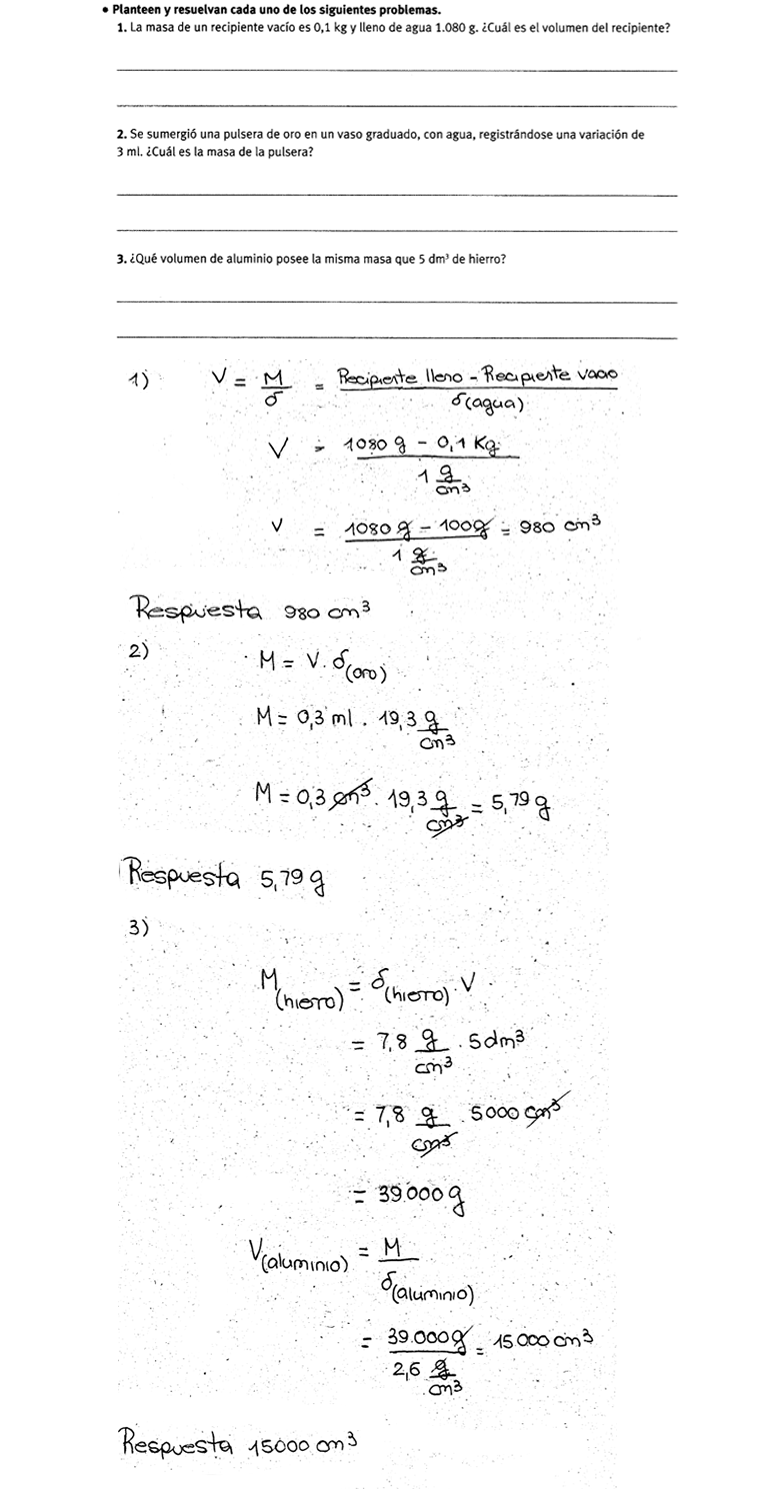 • Planteen y resuelvan cada uno de los siguientes problemas.
1. La masa de un recipiente vacío es 0,1 kg y lleno de agua 1.080 g. ¿Cuál es el volumen del recipiente?
2. Se sumergió una pulsera de oro en un vaso graduado, con agua, registrándose una variación de
3 ml. ¿Cuál es la masa de la pulsera?
3. ¿Qué volumen de aluminio posee la misma masa que 5 dm³ de hierro?
1) V = M/δ = Recipiente lleno - Recipiente vacio / δ(agua)
V = 1080 g - 0,1 Kg / 1 g/cm³
V = 1080 g - 100 g / 1 g/cm³ = 980 cm³
Respuesta 980 cm³
2) M = V . δ(oro)
M = 0,3 ml . 19,3 g/cm³
M = 0,3 cm³ . 19,3 g/cm³ = 5,79 g
Respuesta 5,79 g
3)
M(hierro) = δ(hierro) . V
= 7,8 g/cm³ . 5dm³
= 7,8 g/cm³ . 5000 cm³
= 39.000 g
V(aluminio) = M/δ(aluminio)
= 39.000 g / 2,6 g/cm³ = 15000 cm³
Respuesta 15000 cm³